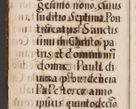 gesimo nono, cum
Indictio Septima, Pon
tificatus Sanctis
simi in Christo pa
tris et domini
domini Pauli di
uina prouidentia
Pa Pæ tercæ anno
ipsius quindecimo